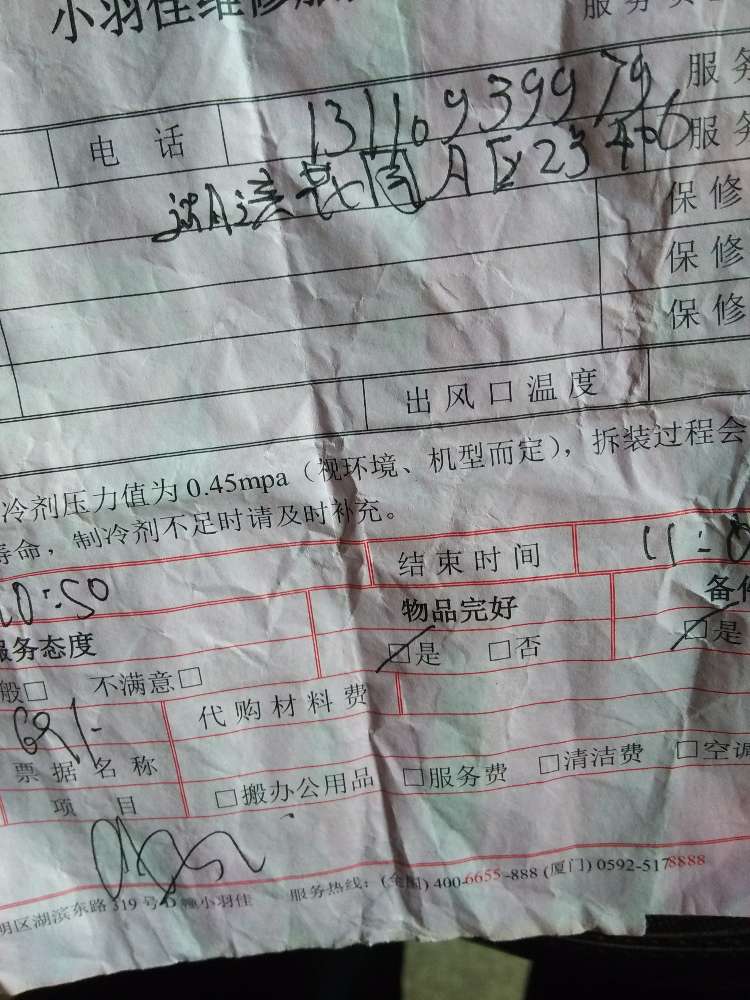 小羽佳维修服
服务
电话 13110939979 服务
A区23 服务
保修
保修
保修
出风口温度
冷剂压力值为0.45mpa（视环境、机型而定），拆装过程会
寿命，制冷剂不足时请及时补充。
10:50 结束时间 11:0
服务态度 物品完好 备件
般□ 不满意□ □是 □否 □是
代购材料费
票据名称
项目 □搬办公用品 □服务费 □清洁费 □空调
明区湖滨东路319号D幢小羽佳 服务热线：(全国) 400-6655-888 (厦门) 0592-5178888